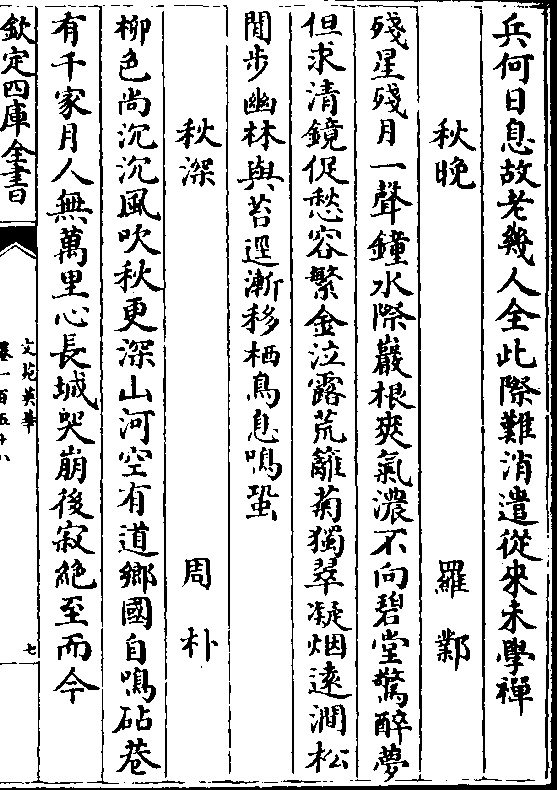 兵何日息故老幾人全此際難消遣從來未學禪
秋晚 羅鄴
殘星殘月一聲鐘水際巖根爽氣濃不向碧堂驚醉夢
但求清鏡促愁容繁金泣露荒籬菊獨翠凝烟遠澗松
閒步幽林與苔逕漸移栖鳥息鳴蛩
秋深 周朴
柳色尚沉沉風吹秋更深山河空有道鄉國自鳴砧巷
有千家月人無萬里心長城哭崩後寂絶至而今
欽定四庫全書
文苑英華
卷一百五十八
七